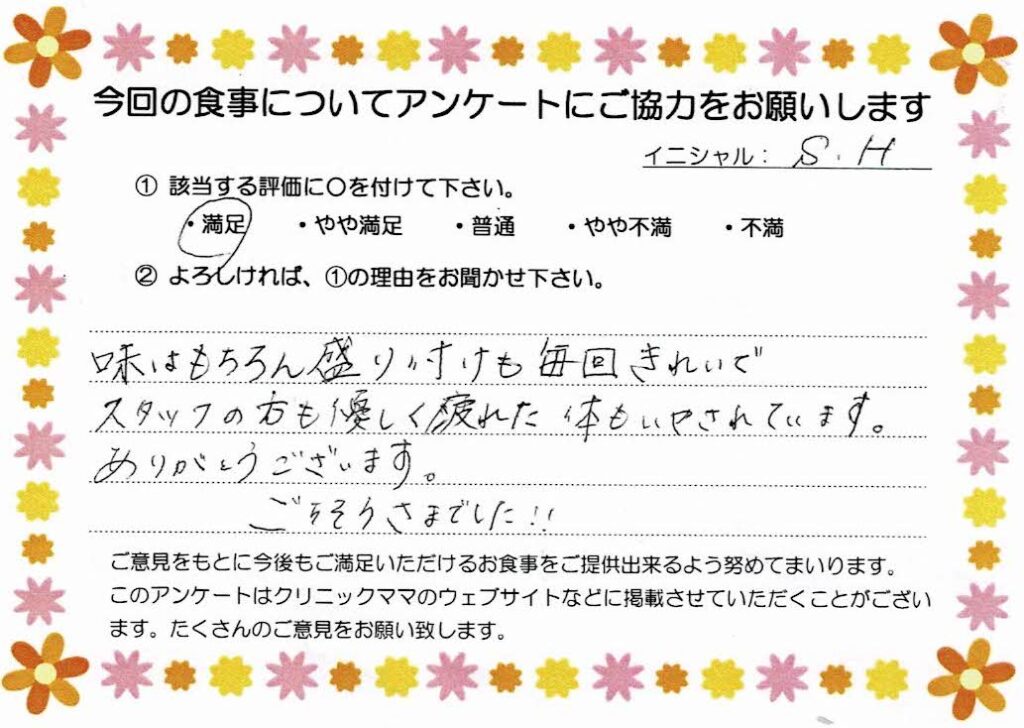 今回の食事についてアンケートにご協力をお願いします
イニシャル: S.H
① 該当する評価に〇を付けて下さい。
・満足 ・やや満足 ・普通 ・やや不満 ・不満
② よろしければ、①の理由をお聞かせ下さい。
味はもちろん盛り付けも毎回きれいで
スタッフの方も優しく疲れた体もいやされています。
ありがとうございます。
ごちそうさまでした!!
ご意見をもとに今後もご満足いただけるお食事をご提供出来るよう努めてまいります。
このアンケートはクリニックママのウェブサイトなどに掲載させていただくことがござい
ます。たくさんのご意見をお願い致します。